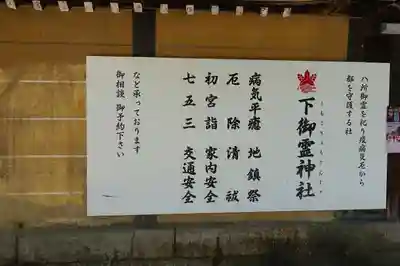 八所御霊を祀り疫病災厄から
都を守護する社
下御霊神社
しもごりょうじんじゃ
病気平癒 地鎮祭
厄除清祓
初宮詣 家内安全
七五三 交通安全
など承っております
御相談 御予約下さい